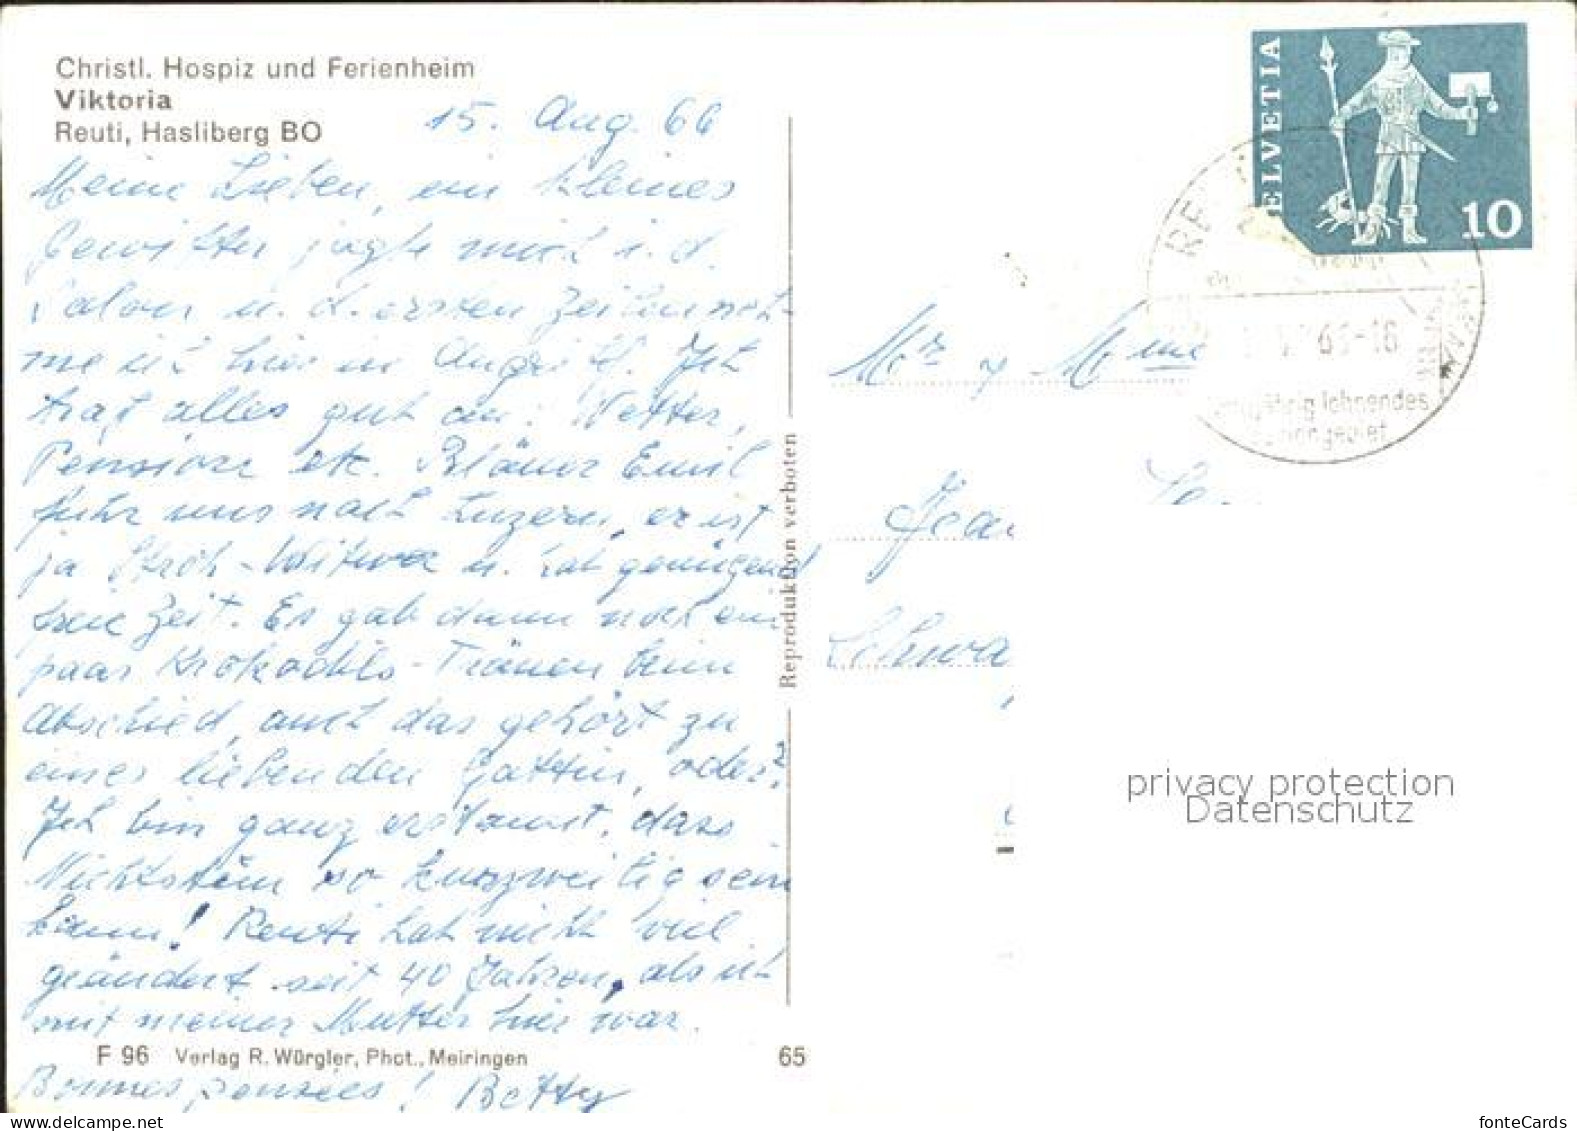 Christl. Hospiz und Ferienheim
Viktoria
Reuti, Hasliberg BO
15. Aug. 66
Meine Lieben, ein kleines
Gewitter jagte mich i. d.
Salon u. d. ersten Zeilen neh-
me ich hier in Angriff. Ich
traf alles gut an: Wetter,
Pension etc. Emil
fuhr uns nach Luzern, er ist
ja Stroh-Witwer u. hat genügend
freie Zeit. Es gab dann noch ein
paar Krokodils-Tränen beim
Abschied, auch das gehört zu
einer liebenden Gattin, oder?
Ich bin ganz erstaunt, dass
Nichtstun so kurzweilig sein
kann! Reuti hat nicht viel
geändert seit 40 Jahren, als ich
mit meiner Mutter hier war.
F 96 Verlag R. Würgler, Phot., Meiringen
65
Bonnes pensées! Betty
Reproduktion verboten
HELVETIA
10
66-16
lohnendes
Mr y Mme
Jean
Schwa
privacy protection
Datenschutz
fonteCards